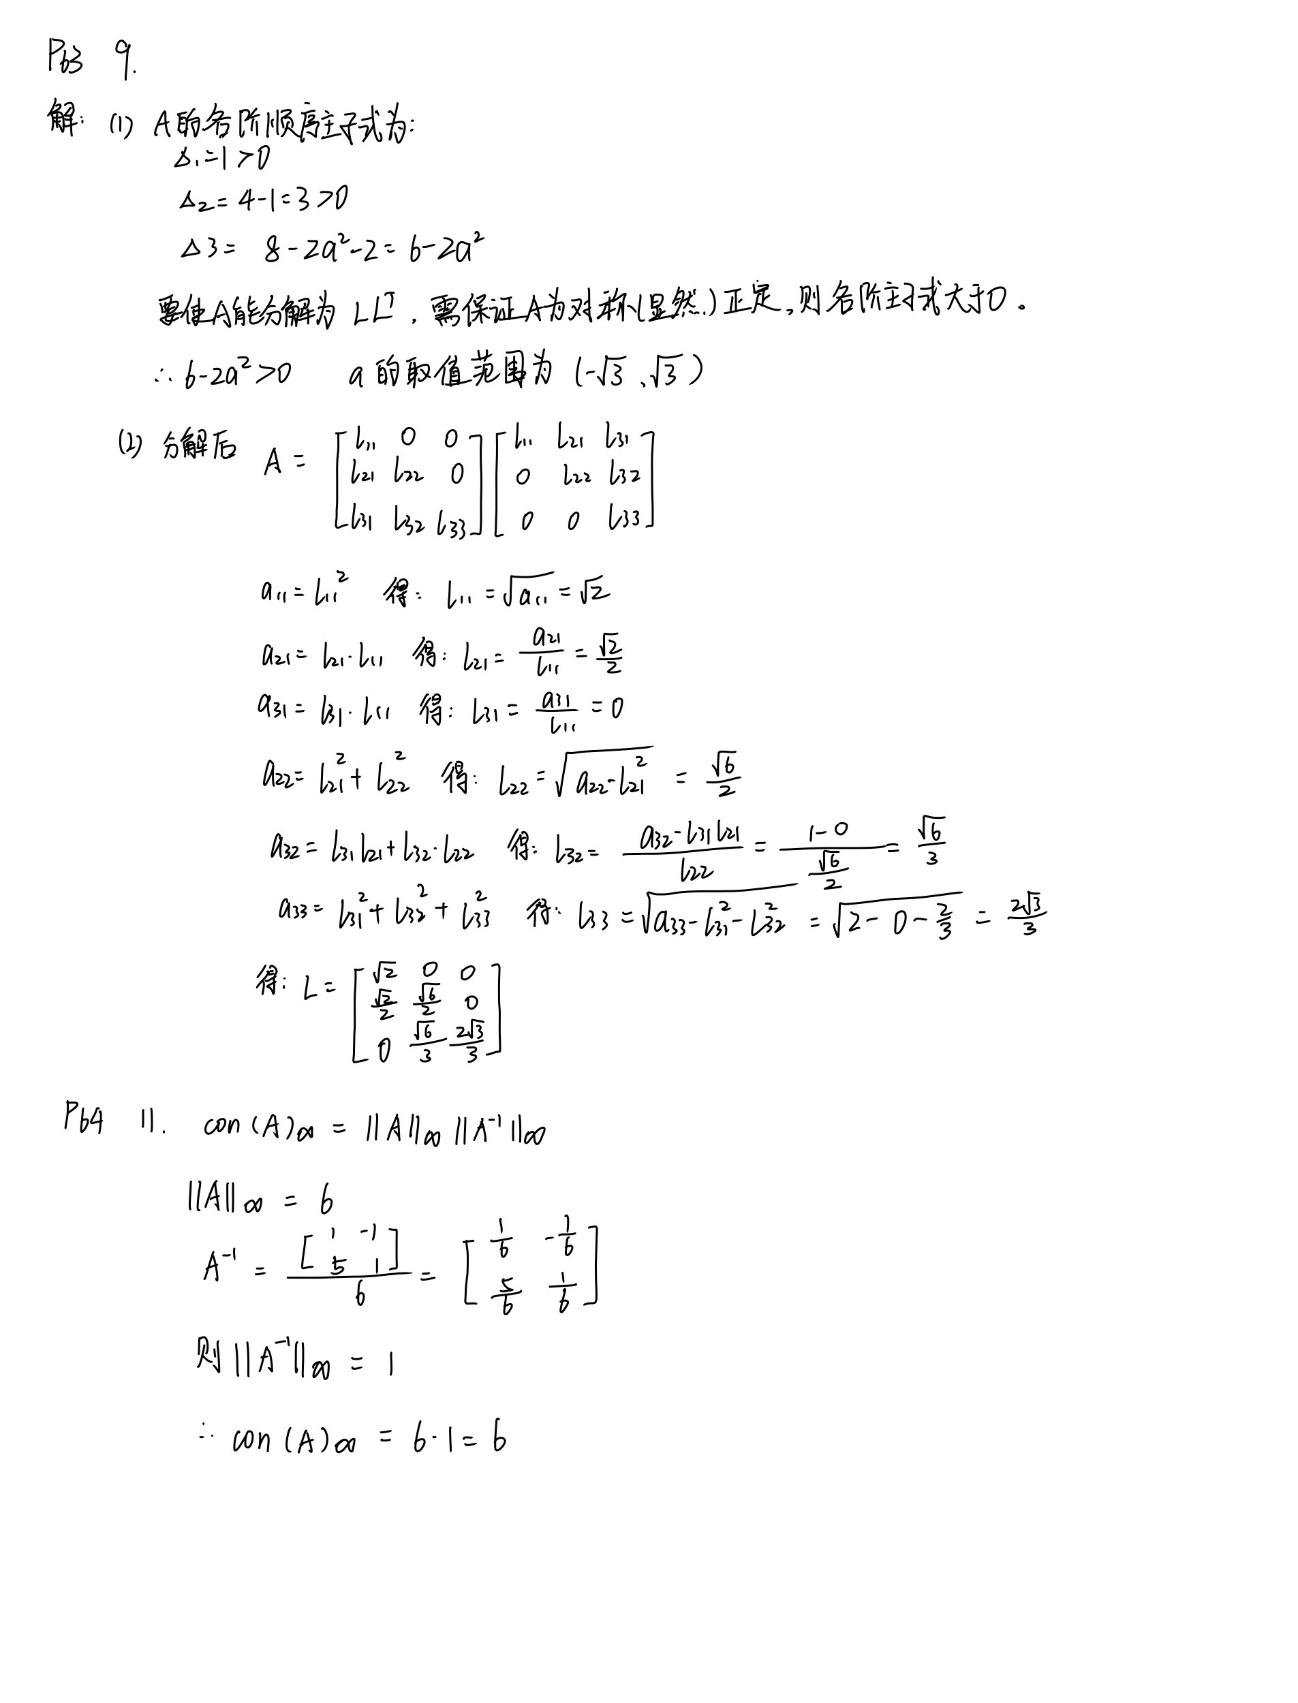 P63 9.
解: (1) A的各阶顺序主子式为:
Δ₁=1>0
Δ₂=4-1=3>0
Δ3= 8-2a²-2=6-2a²
要使A能分解为 LLᵀ, 需保证A为对称(显然)正定,则各阶主子式大于0。
∴ 6-2a²>0 a的取值范围为 (-√3、√3)
(2) 分解后 A = [l₁₁ 0 0; l₂₁ l₂₂ 0; l₃₁ l₃₂ l₃₃] [l₁₁ l₂₁ l₃₁; 0 l₂₂ l₃₂; 0 0 l₃₃]
a₁₁=l₁₁² 得: l₁₁=√a₁₁=√2
a₂₁=l₂₁·l₁₁ 得: l₂₁=a₂₁/l₁₁=√2/2
a₃₁=l₃₁·l₁₁ 得: l₃₁=a₃₁/l₁₁=0
a₂₂=l₂₁²+l₂₂² 得: l₂₂=√(a₂₂-l₂₁²) = √6/2
a₃₂=l₃₁l₂₁+l₃₂·l₂₂ 得: l₃₂= (a₃₂-l₃₁l₂₁)/l₂₂ = (1-0)/(√6/2) = √6/3
a₃₃=l₃₁²+l₃₂²+l₃₃² 得: l₃₃=√(a₃₃-l₃₁²-l₃₂²) =√(2-0-2/3) = 2√3/3
得: L= [√2 0 0; √2/2 √6/2 0; 0 √6/3 2√3/3]
P64 11. con(A)∞ = ||A||∞ ||A⁻¹||∞
||A||∞ = 6
A⁻¹ = [1 -1; 5 1]/6 = [1/6 -1/6; 5/6 1/6]
则||A⁻¹||∞ = 1
∴ con(A)∞ = 6·1=6